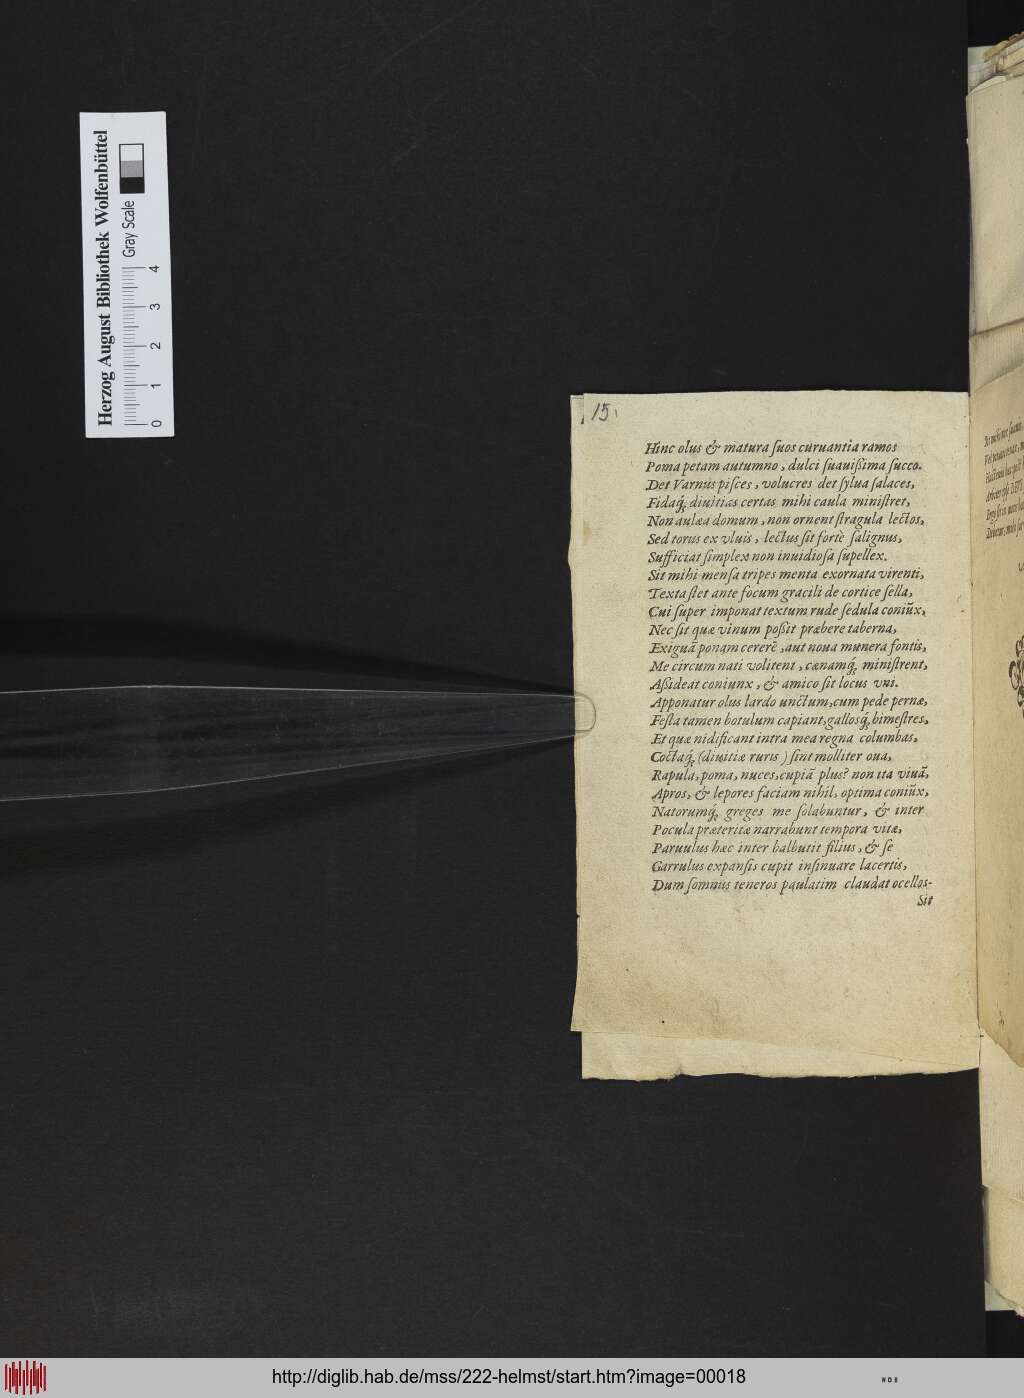 Herzog August Bibliothek Wolfenbüttel
Gray Scale
0 1 2 3 4
15.
Hinc olus & matura ſuos curuantia ramos
Poma petam autumno, dulci ſuauißima ſucco.
Det Varnus piſces, volucres det ſylua ſalaces,
Fidaq́; diuitias certas mihi caula miniſtret,
Non aulæa domum, non ornent ſtragula lectos,
Sed torus ex vluis, lectus ſit fortè ſalignus,
Sufficiat ſimplex non inuidioſa ſupellex.
Sit mihi menſa tripes menta exornata virenti,
Texta ſtet ante focum gracili de cortice ſella,
Cui ſuper imponat textum rude ſedula coniũx,
Nec ſit quæ vinum poßit præbere taberna,
Exiguã ponam cererẽ, aut noua munera fontis,
Me circum nati volitent, cænamq́; miniſtrent,
Aßideat coniunx, & amico ſit locus vni.
Apponatur olus lardo unctum, cum pede pernæ,
Feſta tamen botulum capiant, galloſq́; bimeſtres,
Et quæ nidificant intra mea regna columbas,
Coctaq́; (diuitiæ ruris) ſint molliter oua,
Rapula, poma, nuces, cupiã plus? non ita viuã,
Apros, & lepores faciam nihil, optima coniũx,
Natorumq́; greges me ſolabuntur, & inter
Pocula præteritæ narrabunt tempora vitæ,
Paruulus hæc inter balbutit filius, & ſe
Garrulus expanſis cupit inſinuare lacertis,
Dum ſomnus teneros paulatim claudat ocellos.
Sit
http://diglib.hab.de/mss/222-helmst/start.htm?image=00018